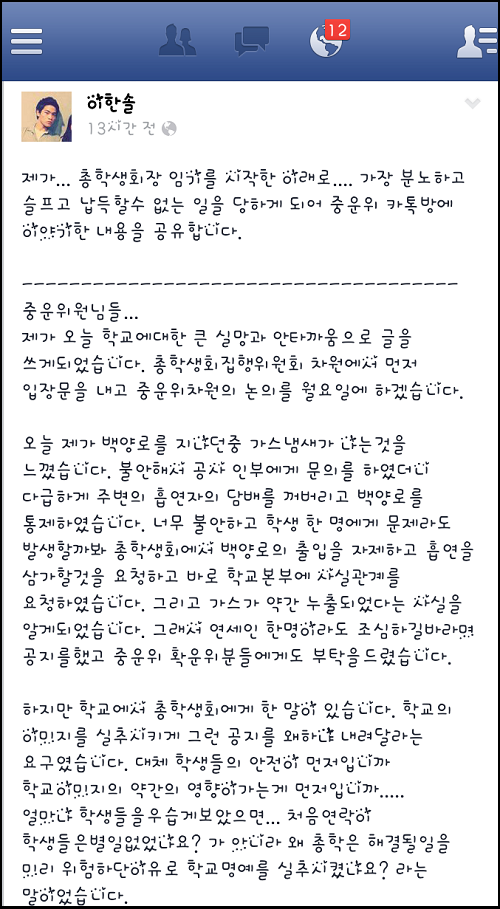 12
이한솔
13시간 전
제가... 총학생회장 임기를 시작한 이래로.... 가장 분노하고
슬프고 납득할수 없는 일을 당하게 되어 중운위 카톡방에
이야기한 내용을 공유합니다.
------------------------------------
중운위원님들...
제가 오늘 학교에대한 큰 실망과 안타까움으로 글을
쓰게되었습니다. 총학생회집행위원회 차원에서 먼저
입장문을 내고 중운위차원의 논의를 월요일에 하겠습니다.
오늘 제가 백양로를 지나던중 가스냄새가 나는것을
느꼈습니다. 불안해서 공사 인부에게 문의를 하였더니
다급하게 주변의 흡연자의 담배를 꺼버리고 백양로를
통제하였습니다. 너무 불안하고 학생 한 명에게 문제라도
발생할까봐 총학생회에서 백양로의 출입을 자제하고 흡연을
삼가할것을 요청하고 바로 학교본부에 사실관계를
요청하였습니다. 그리고 가스가 약간 누출되었다는 사실을
알게되었습니다. 그래서 연세인 한명이라도 조심하길바라며
공지를했고 중운위 확운위분들에게도 부탁을드렸습니다.
하지만 학교에서 총학생회에게 한 말이 있습니다. 학교의
이미지를 실추시키게 그런 공지를 왜하냐 내려달라는
요구였습니다. 대체 학생들의 안전이 먼저입니까
학교이미지의 약간의 영향이가는게 먼저입니까.....
얼마나 학생들을우습게보았으면... 처음연락이
학생들은별일없었나요? 가 아니라 왜 총학은 해결될일을
미리 위험하단이유로 학교명예를 실추시켰냐요? 라는
말이었습니다.